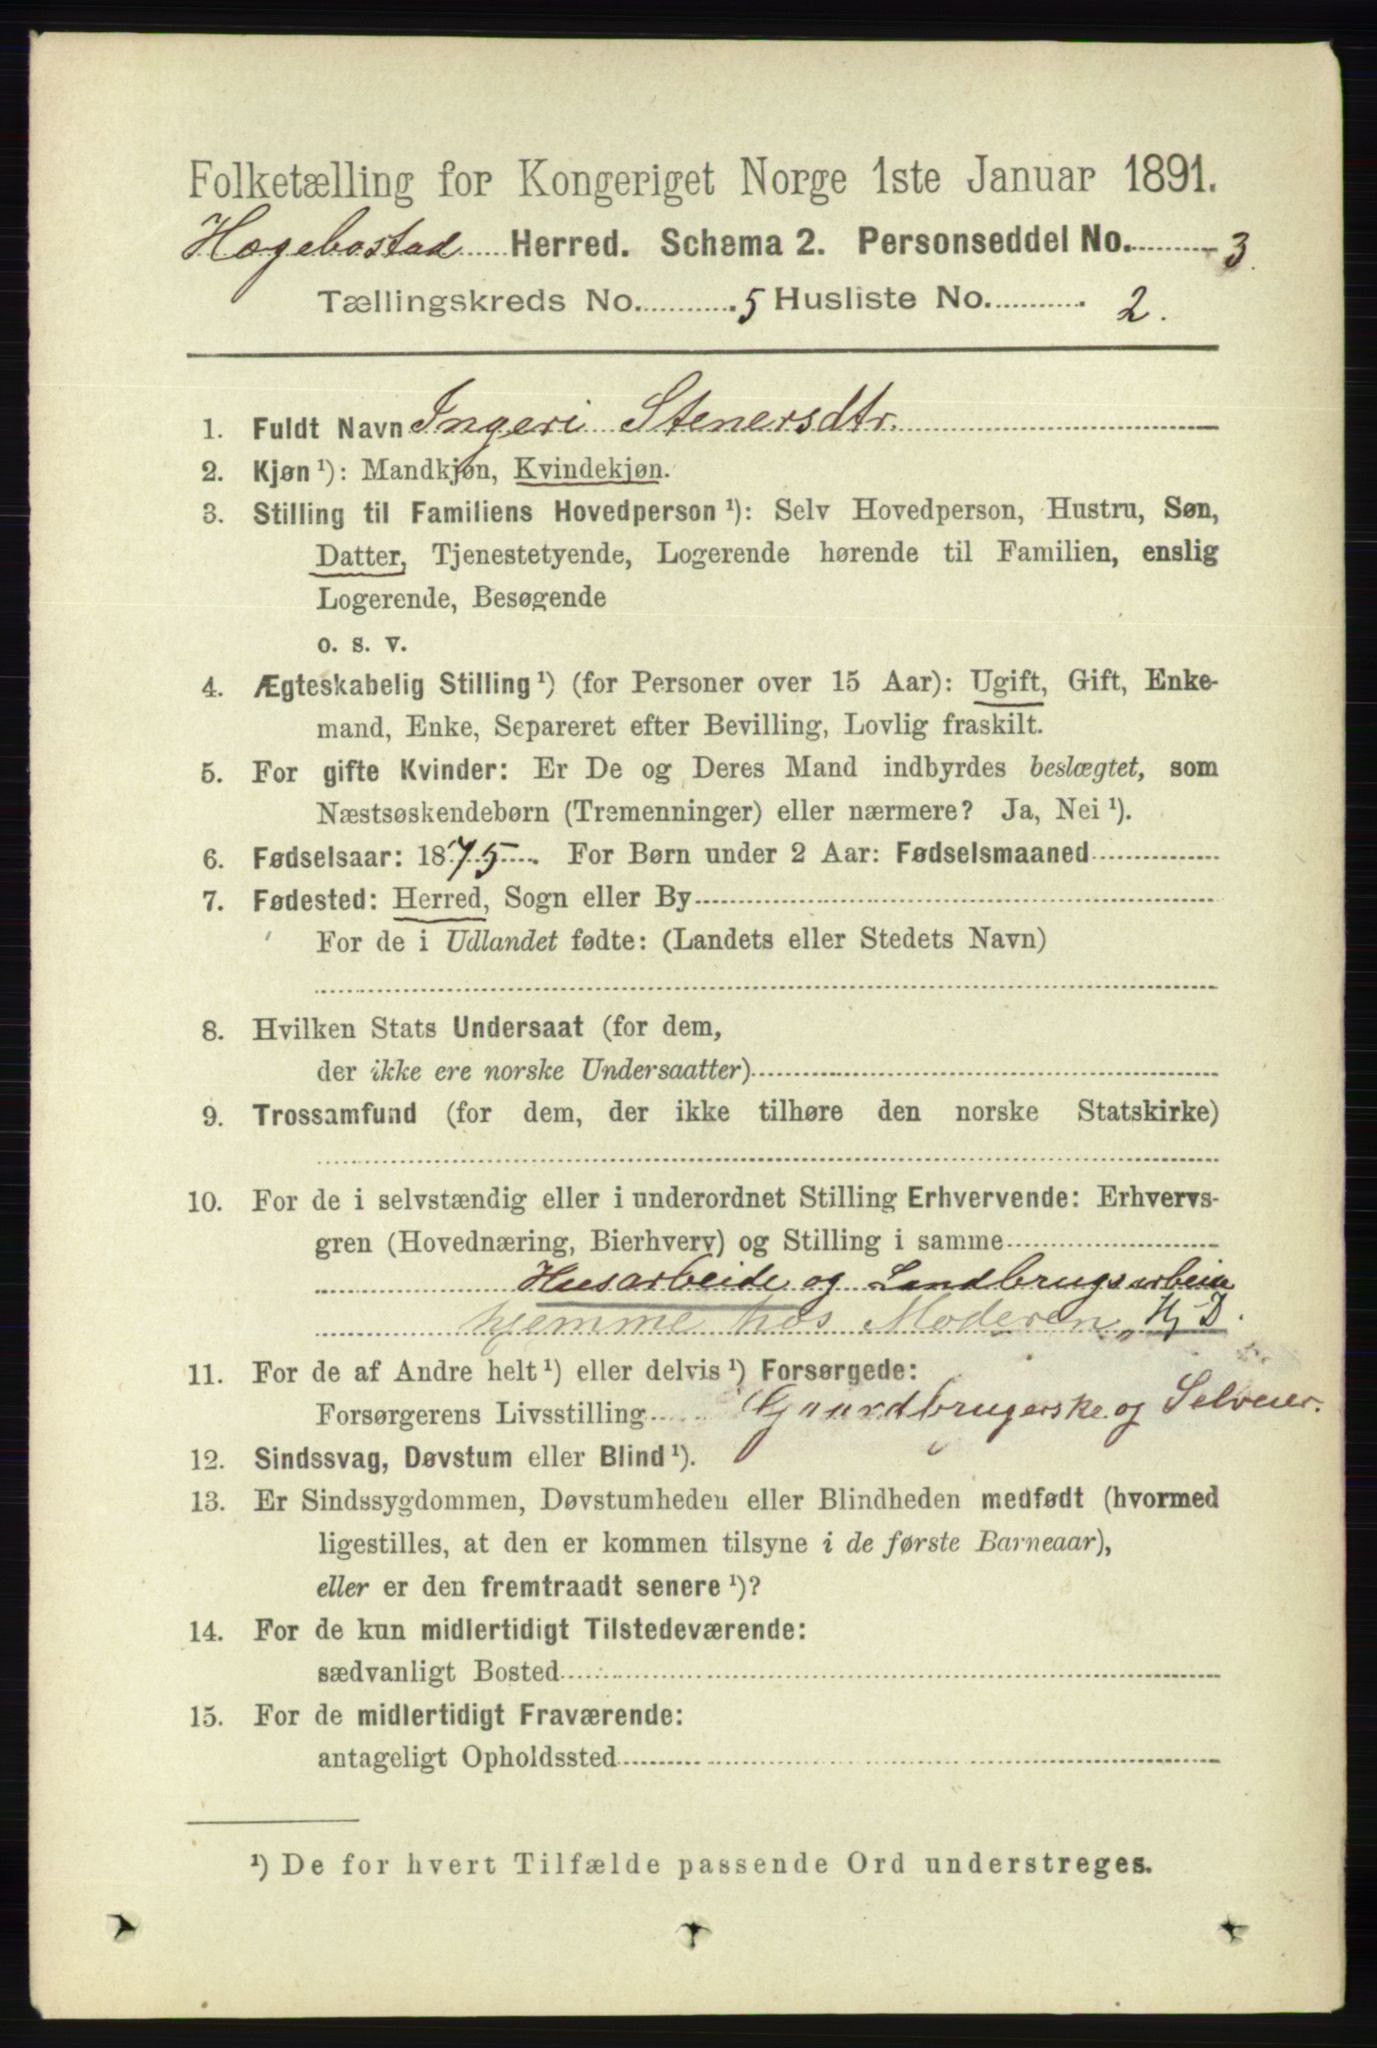 Folketælling for Kongeriget Norge 1ste Januar 1891.
Hægebostad Herred. Schema 2. Personseddel No. 3.
Tællingskreds No. 5 Husliste No. 2.
1. Fuldt Navn Ingeri Stenersdtr.
2. Kjøn ¹): Mandkjøn, Kvindekjøn.
3. Stilling til Familiens Hovedperson ¹): Selv Hovedperson, Hustru, Søn,
Datter, Tjenestetyende, Logerende hørende til Familien, enslig
Logerende, Besøgende
o. s. v.
4. Ægteskabelig Stilling ¹) (for Personer over 15 Aar): Ugift, Gift, Enke-
mand, Enke, Separeret efter Bevilling, Lovlig fraskilt.
5. For gifte Kvinder: Er De og Deres Mand indbyrdes beslægtet, som
Næstsøskendebørn (Tremenninger) eller nærmere? Ja, Nei ¹).
6. Fødselsaar: 1875. For Børn under 2 Aar: Fødselsmaaned
7. Fødested: Herred, Sogn eller By
For de i Udlandet fødte: (Landets eller Stedets Navn)
8. Hvilken Stats Undersaat (for dem,
der ikke ere norske Undersaatter)
9. Trossamfund (for dem, der ikke tilhøre den norske Statskirke)
10. For de i selvstændig eller i underordnet Stilling Erhvervende: Erhvervs-
gren (Hovednæring, Bierhverv) og Stilling i samme
Husarbeide og Landbrugsarbeide
hjemme hos Moderen, Hj D.
11. For de af Andre helt ¹) eller delvis ¹) Forsørgede:
Forsørgerens Livsstilling Gaardbrugerske og Selveier.
12. Sindssvag, Døvstum eller Blind ¹).
13. Er Sindssygdommen, Døvstumheden eller Blindheden medfødt (hvormed
ligestilles, at den er kommen tilsyne i de første Barneaar),
eller er den fremtraadt senere ¹)?
14. For de kun midlertidigt Tilstedeværende:
sædvanligt Bosted
15. For de midlertidigt Fraværende:
antageligt Opholdssted
¹) De for hvert Tilfælde passende Ord understreges.